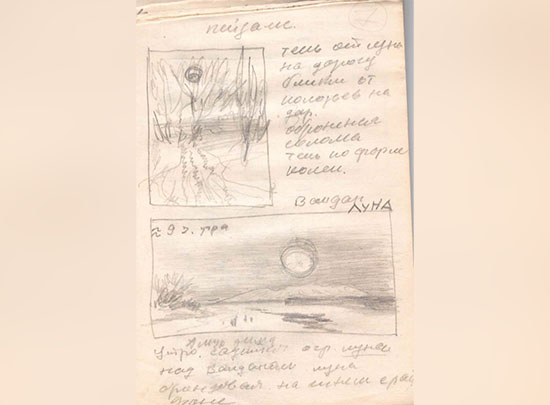 пейзаж.
тень от луны
на дорогу
блики от
полозьев на
дор.
оброненая
солома
тень по форме
колеи.
Валдай
ЛУНА
≈ 9 ч. утра
Утро. садится огр. луна
над Валдаем луна
оранжевая на синем